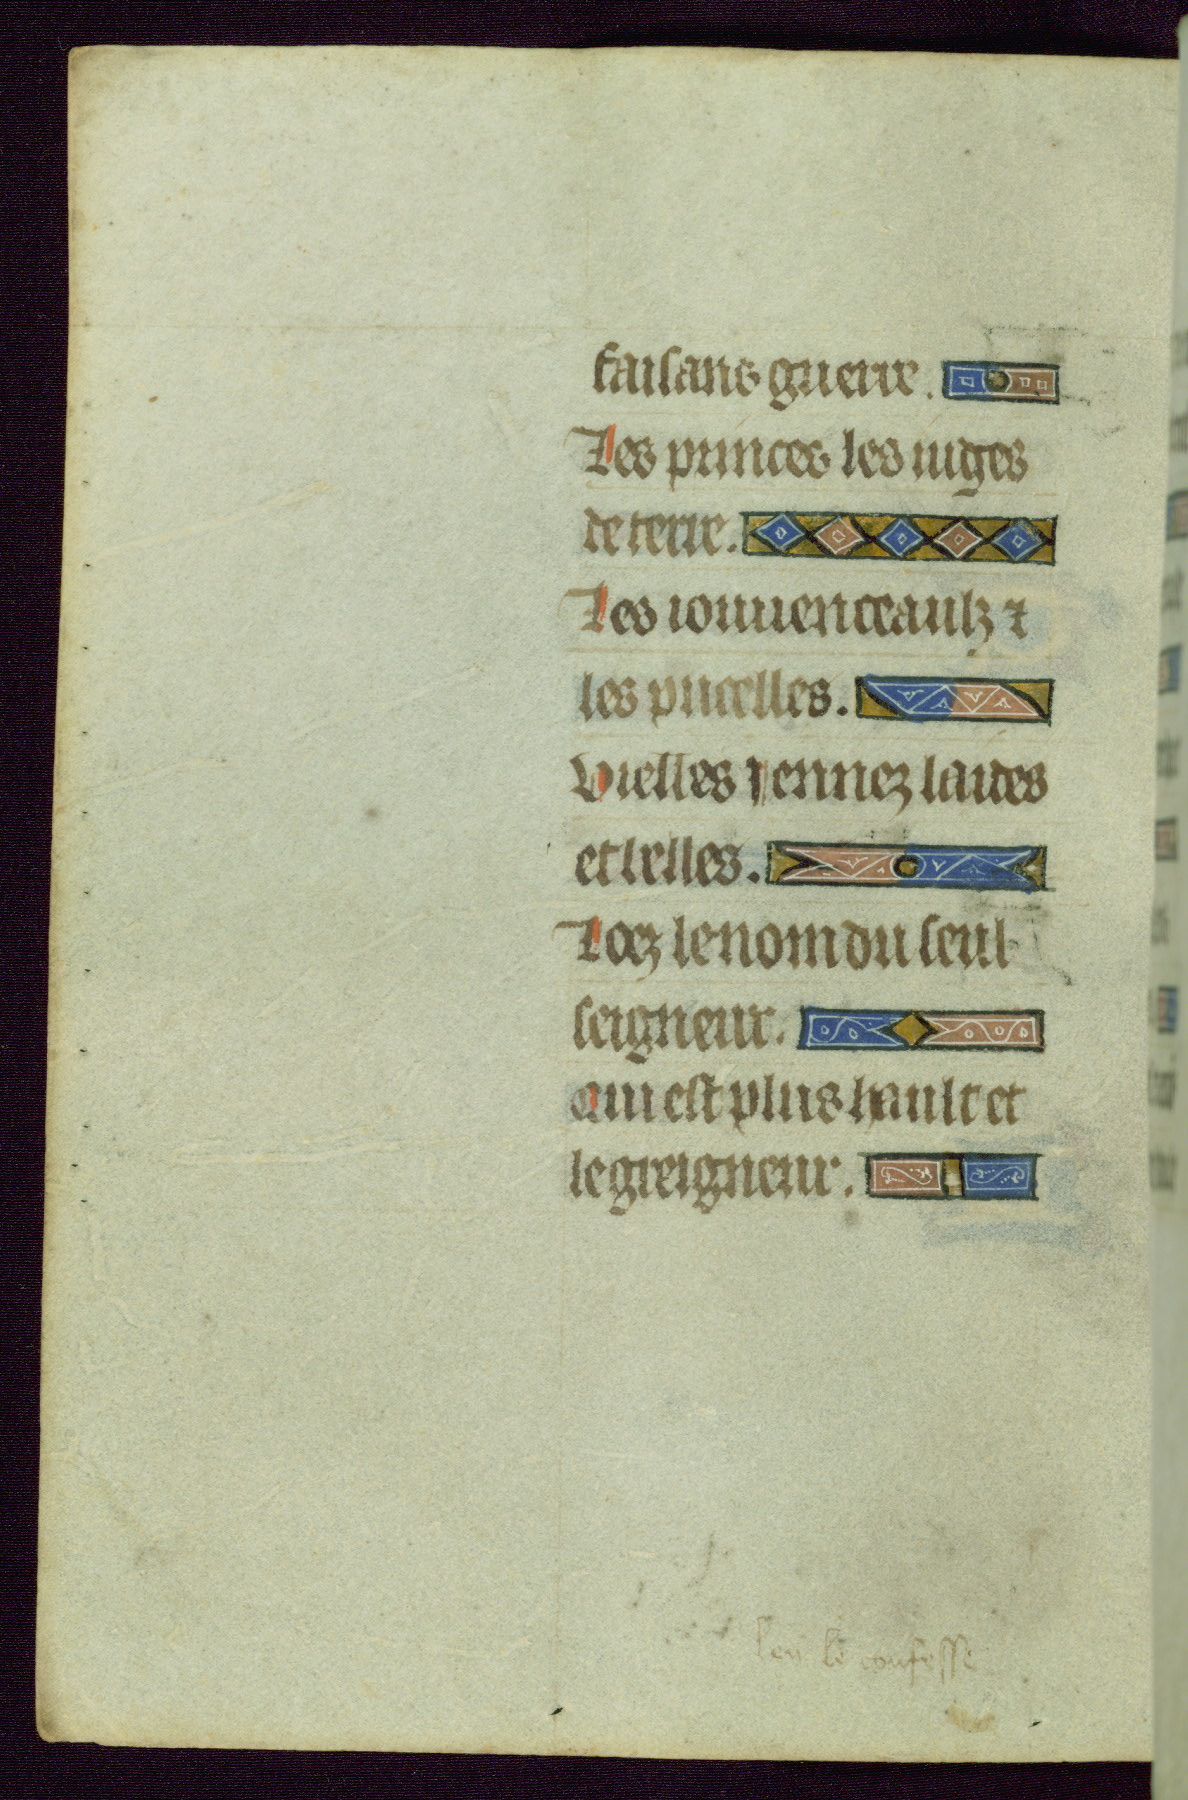 faisans guerre.
Les princes les iuges
de terre.
Les iouuenceaulz ⁊
les pucelles.
Vielles iennez laides
et belles.
Loez le nom du seul
seigneur.
Qui est plus hault et
le greigneur.
len le confesse